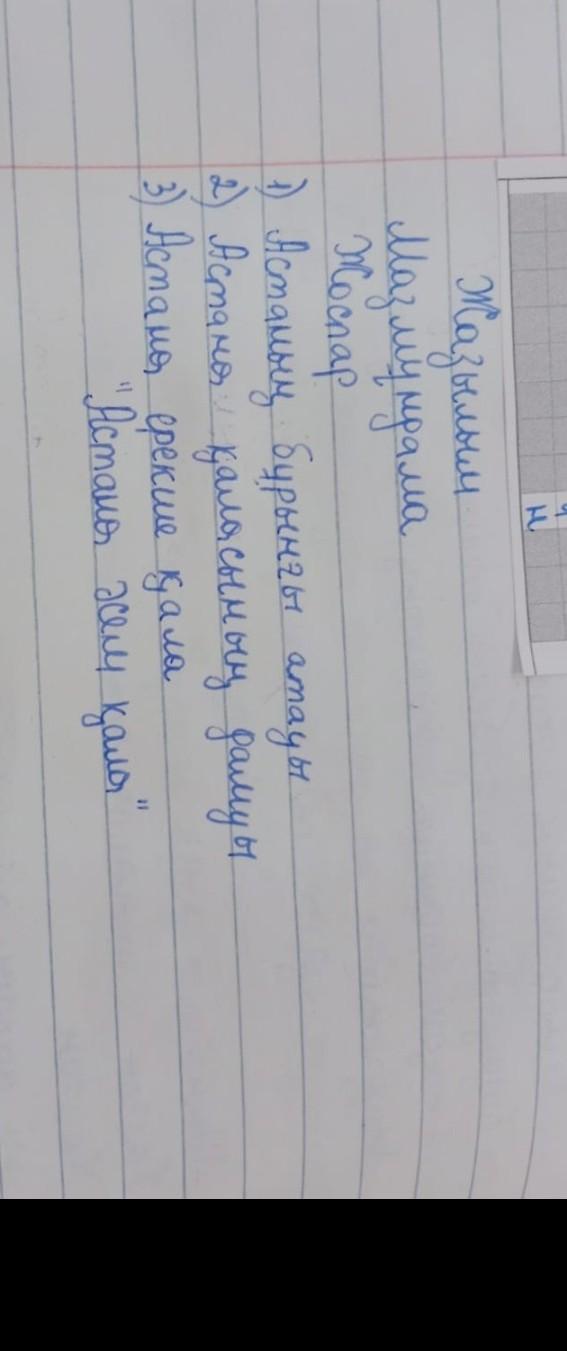 Жазылым
Мазмұндама
Жоспар
1) Астаның бұрынғы атауы
2) Астана қаласының дамуы
3) Астана ерекше қала
"Астана жем қала"